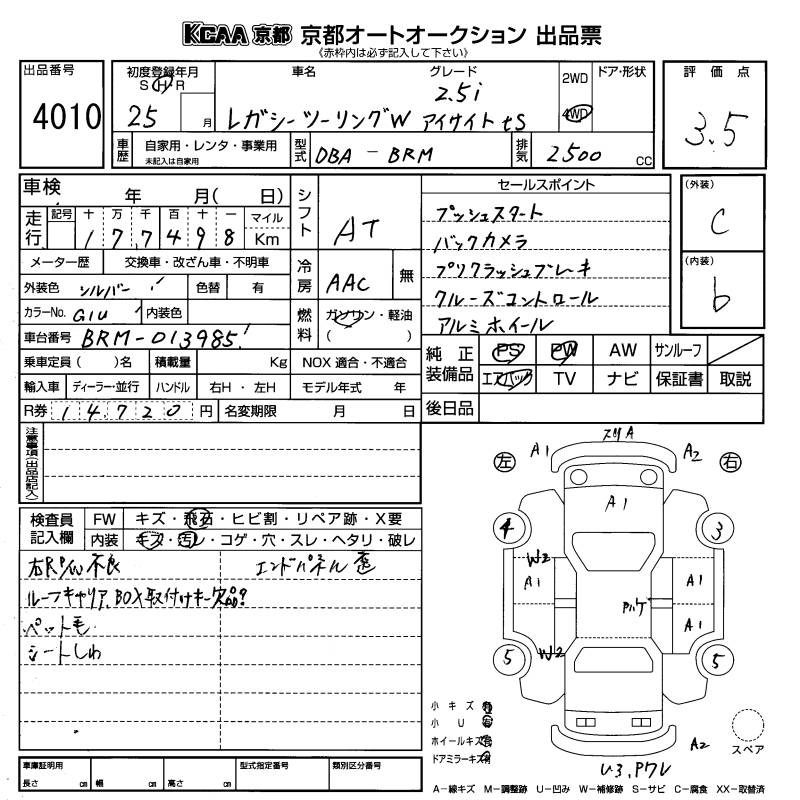 KCAA 京都 京都オートオークション 出品票
《赤枠内は必ず記入して下さい》
出品番号
4010
初度登録年月
S H R
25 月
車名
グレード
2.5i
レガシーツーリングW アイサイトtS
2WD
4WD
ドア・形状
評価点
3.5
車歴
自家用・レンタ・事業用
未記入は自家用
型式
DBA-BRM
排気
2500 CC
車検 年 月( 日)
走行
記号 十 万 千 百 十 一 マイル
1 7 7 4 9 8 Km
シフト
AT
セールスポイント
プッシュスタート
バックカメラ
プリクラッシュブレーキ
クルーズコントロール
アルミホイール
(外装)
C
(内装)
b
メーター歴 交換車・改ざん車・不明車
外装色 シルバー 色替 有
冷房 AAC 無
カラーNo. G1U 内装色
燃料 ガソリン・軽油
( )
車台番号 BRM-013985
乗車定員( )名 積載量 Kg NOX 適合・不適合
輸入車 ディーラー・並行 ハンドル 右H・左H モデル年式 年
R券 14,720 円 名変期限 月 日
純正装備品
PS PW AW サンルーフ
エアバック TV ナビ 保証書 取説
後日品
注意事項(出品店記入)
検査員記入欄
FW キズ・飛石・ヒビ割・リペア跡・X要
内装 キズ・汚レ・コゲ・穴・スレ・ヘタリ・破レ
右RP/W不良
エンドパネル歪
ルーフキャリア、BOX取付けキー欠品?
ペット毛
シートしわ
左 A1 スリA A2 右
A1
4 3
W2
A1 A1
A1
5 W2 5
A2
U3,Pワレ
小キズ 有
小U 有
ホイールキズ 有
ドアミラーキズ 有
スペア
車庫証明用
長さ cm 幅 cm 高さ cm
型式指定番号
類別区分番号
A−線キズ M−調整跡 U−凹み W−補修跡 S−サビ C−腐食 XX−取替済